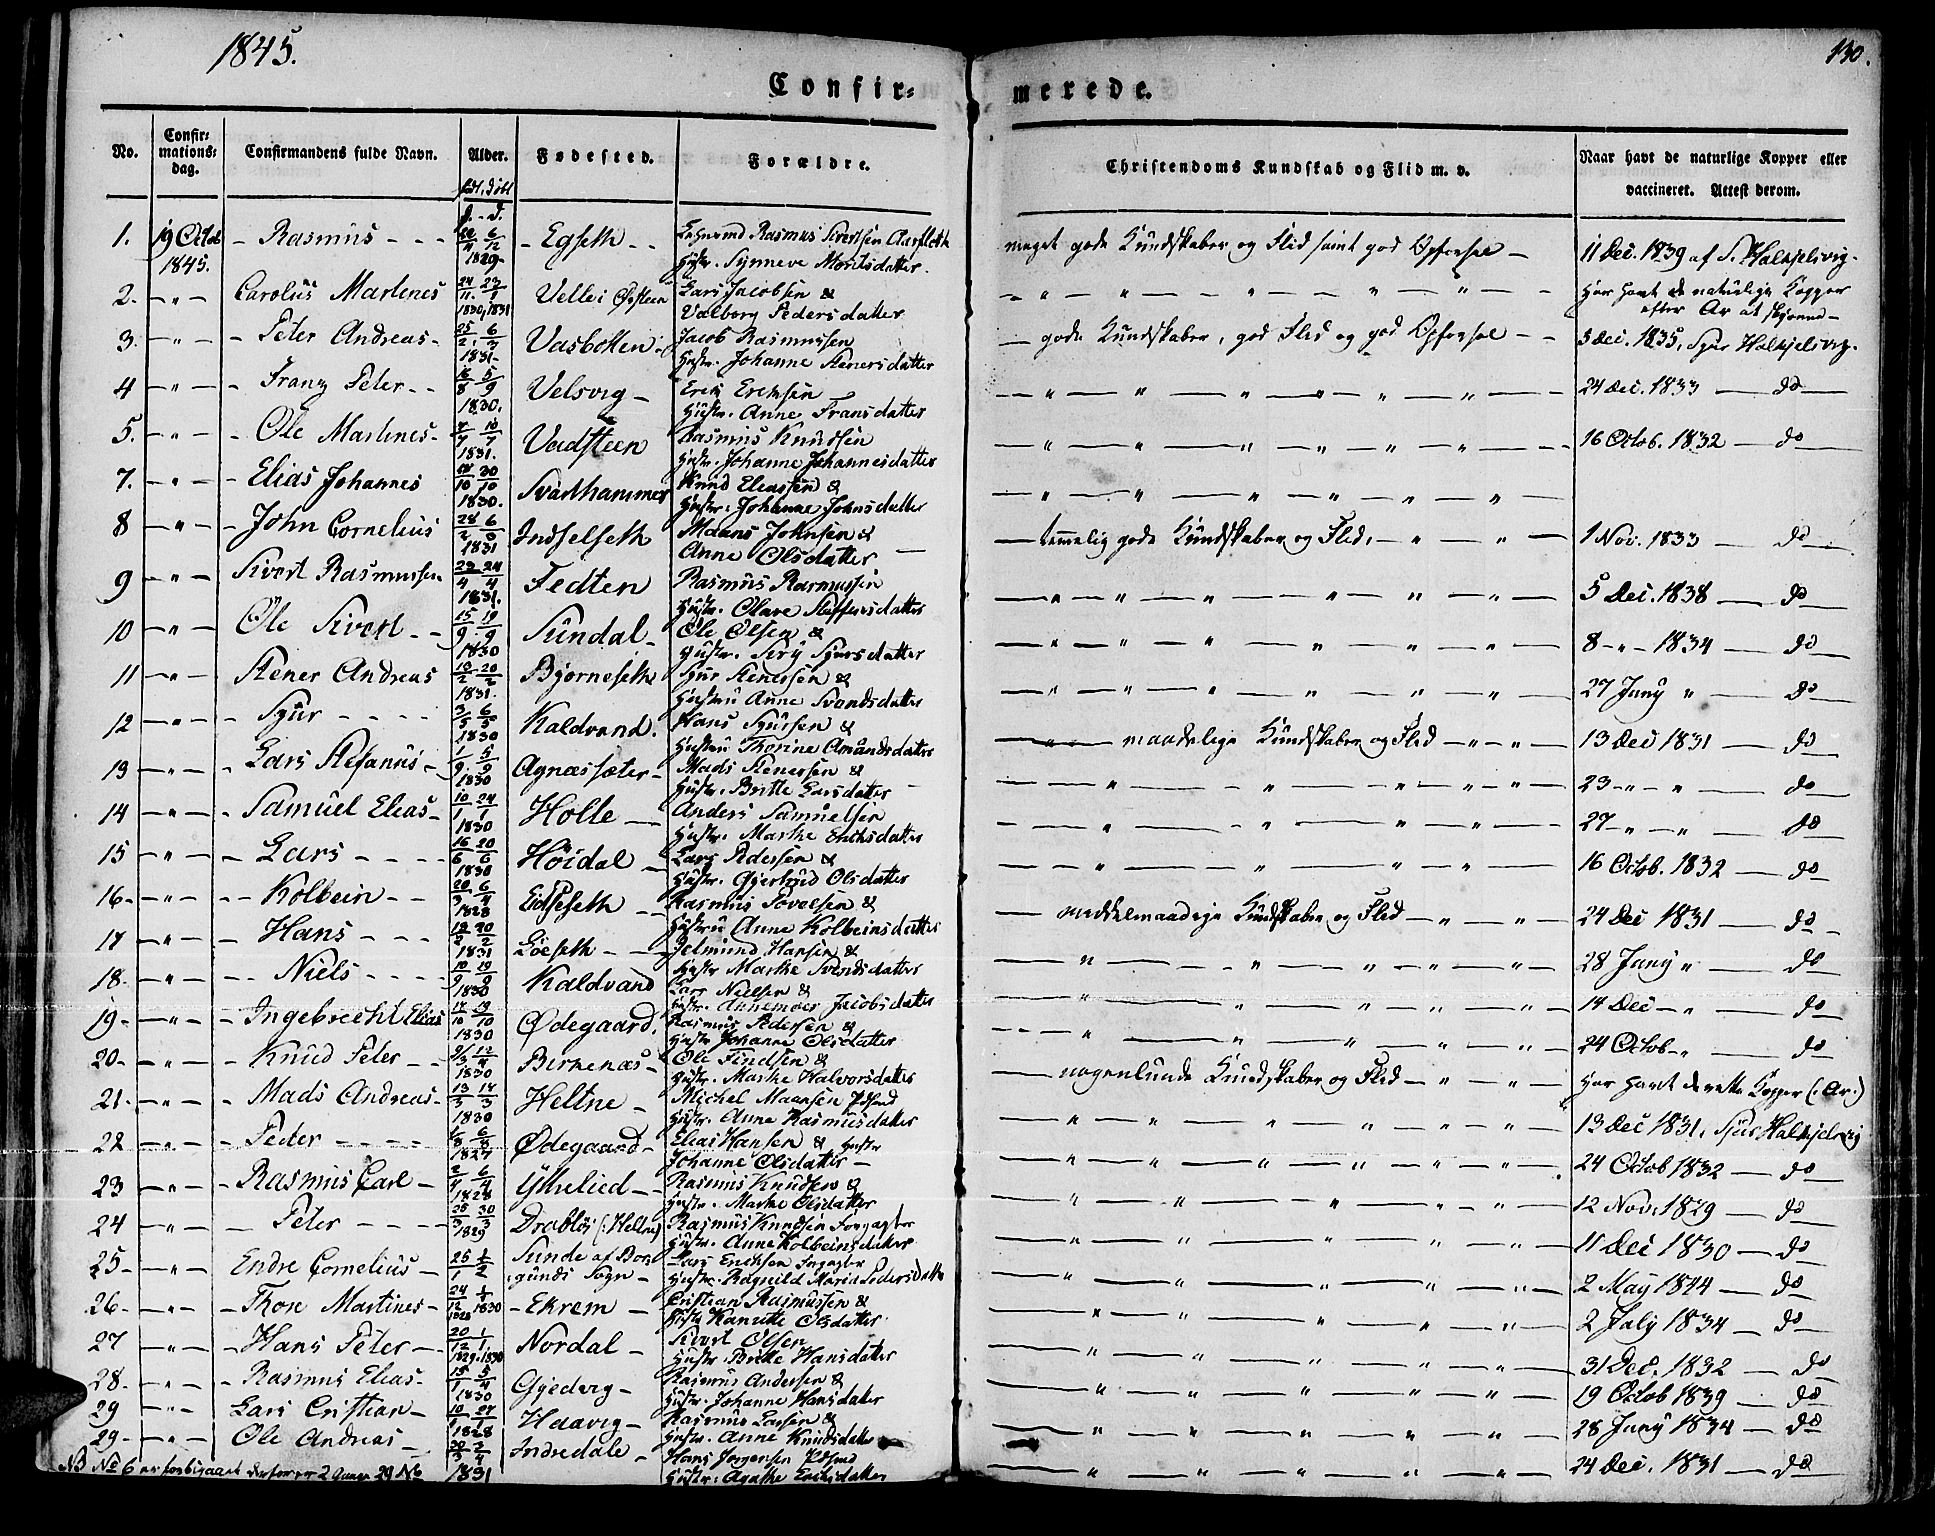 1845.
130.
Confir-
merede.
No.
Confir-
mations-
dag.
Confirmandens fulde Navn.
Alder.
Fødested.
Forældre.
Christendoms Kundskab og Flid m. v.
Naar havt de naturlige Kopper eller
vaccineret. Attest derom.
født, døbt
1. 19 Octob 1845. Rasmus 1829 Egseth Rasmus Sivertsen Aarfloth
Hustr. Synneve Moritsdatter.
meget gode Kundskaber og Flid samt god Opførsel 11 Dec. 1839 af S. Halkjelsvig.
2. Carolus Martenes 24/11 23/1 1830, 1831 Lars Jacobsen &
Valborg Pedersdatter
Har havt de naturlige Kopper
efter Ar at skjønne
3. Peter Andreas 25/2 6/3 1831 Vasbotten Jacob Rasmussen
Hustr. Johanne Stenersdatter
gode Kundskaber, god Flid og god Opførsel 3 Dec. 1835, Sjur Halkjelsvig.
4 Franz Peter 16/8 5/9 1830. Velsvig Erik Ericksen
Hustr. Anne Fransdatter
24 Dec. 1833 do
5. Ole Martenes 1831. Vadsteen Rasmus Knudsen
Hustr. Johanne Johannesdatter
16 Octob. 1832 do
7. Elias Johannes 1830. Svarthammer Knud Eleassen &
Hustr. Johanne Johnsdatter
8 John Cornelius 28/2 1831 Indselseth Maans Johnsen &
Anne Olsdatter
temmelig gode Kundskaber og Flid, 1 Nov. 1833 do
9 Sivert Rasmussen 23/4 24/4 1831. Fedten Rasmus Rasmussen
Hustr. Olave Steffensdatter
5 Dec. 1838 do
10 Ole Sivert 15/9 19/9 1830 Sundal Ole Olsen &
Hustr. Siri Sjursdatter
8 1834 do
11 Stener Andreas 1831. Bjørneseth Sjur Stenersen &
Hustru Anne Svendsdatter
27 Juny do
12 Sjur 3/5 6/5 1830 Kaldvand. Hans Sjursen &
Hustru Thorine Amundsdatter
maadelige Kundskaber og Flid 13 Dec 1831 do
13 Lars Stefanus 1/9 5/9 1830 Agnæssæter Mads Stenersen &
Hustr. Britte Larsdatter
23 do
14 Samuel Eleas 10/1 24/1 1830 Holle Anders Samuelsen
Hustr. Marthe Eriksdatter
27 do
15 Lars 16/6 20/6 1830 Höidal Lars Pedersen &
Hustr. Gjertrud Olsdatter
16 Octob. 1832 do
16 Kolbein 20/3 6/4 1828 Eidseseth Rasmus Povelsen &
Hustru Anne Kolbeinsdatter
middelmaadige Kundskaber og Flid 24 Dec 1831 do
17 Hans 1831 Løeseth Jetmund Hansen &
Hustr Marthe Svendsdatter
28 Juny do
18. Niels 10/9 19/9 1830 Kaldvand Lars Nielsen &
Hustr. Annemoer Jacobsdatter
14 Dec do
19 Ingebrecht Elias 1830 Ødegaard. Rasmus Pedersen &
Hustr Johanne Olsdatter
24 Octob do
20 Knud Peter 1830 Birkenæs Ole Findsen &
Hustr. Marthe Halvorsdatter
nogenlunde Kundskaber og Flid Har havt de rette Kopper (: Ar :)
21 Mads Andreas 1830 Heltne Michel Maansen
Hustr. Anne Rasmusdatter
13 Dec 1831, Sjur Halkjelsvig
22 Peter 1827 Ødegaard Elias Hansen & Hustr
Johanne Olsdatter
24 Octob 1832 do
23 Rasmus Carl 2/4 6/4 1828 Rasmus Knudsen &
Hustr. Marthe Olsdatter
12 Nov. 1829 do
24 Peter 25/3 30/3 1829 Drabløs (: Heltne) Rasmus Knudsen
Hustr. Anne Kolbeinsdatter
11 Dec 1830 do
25 Endre Cornelius Sunde af Bor-
gunds Sogn Lars Ericksen
Hustr Ragnild Maria Pedersdatter
2 May 1844 do
26 Thore Martines 1828 1830 Ekrem Cristian Rasmussen &
Hustr Kanutte Olsdatter
2 July 1834 do
27 Hans Peter 20/12 1/1 1829, 1830 Nordal Sivert Olsen
Hustr Britte Hansdatter
31 Dec. 1832 do
28 Rasmus Elias 1830 Gjedvig Rasmus Andersen &
Hustr. Johanne Hansdatter
19 Octob 1839 do
29 Lars Cristian 1828 Haavig Rasmus Larsen &
Hustr. Anne Knudsdatter
28 Juny 1834 do
29 Ole Andreas 1831 Indredale Hans Jørgensen
Hustr. Agathe Eriksdatter
24 Dec. 1831 do
NB No 6 er forbigaaet derfor er 2 Gange 29 No